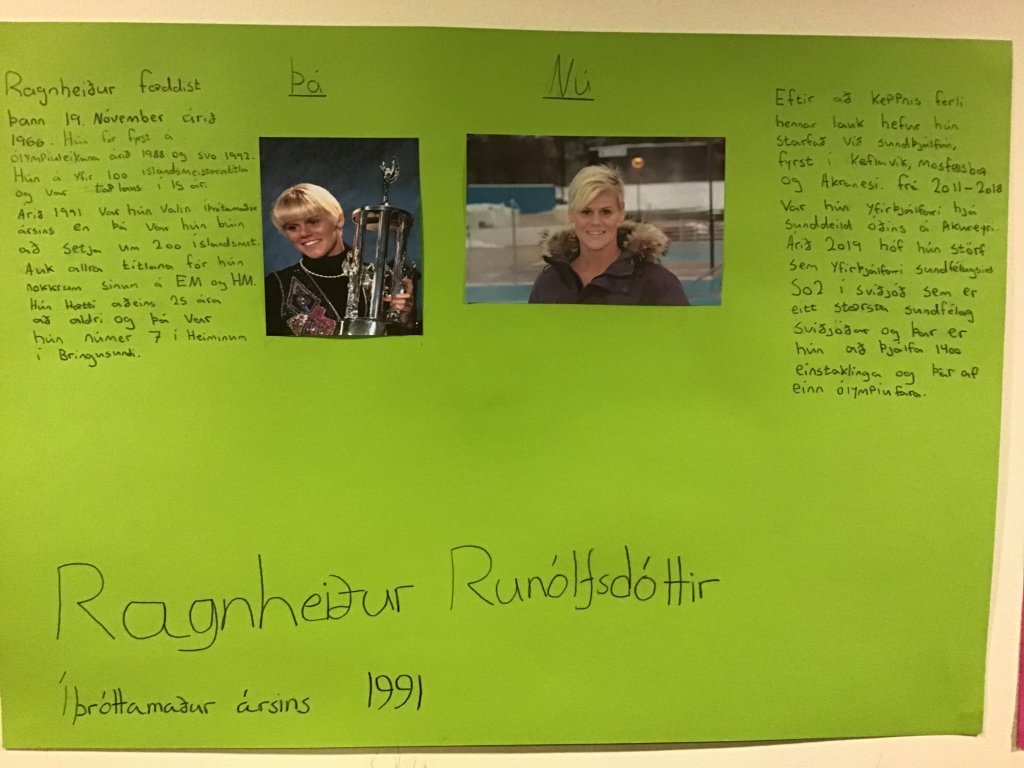 Þá
Nú
Ragnheiður fæddist
Þann 19. Nóvember árið
1966. Hún fór fyrst á
ólympiuleikana árið 1988 og svo 1992.
Hún á yfir 100 islandsmeistaratitla
og var taplaus i 15 ár.
Arið 1991 var hún valin iþrótamaður
ársins en þá var hún búin
að setja um 200 islandsmet.
Auk allra titlana fór hún
nokkrum sinum á EM og HM.
Hún Hætti aðeins 25 ára
að aldri. og þá var
hún númer 7 í Heiminum
i Bringusundi.
Eftir að keppnis ferli
hennar lauk hefur hún
starfað við sundþjálfun,
fyrst i Keflavik, Mosfellsbæ
og Akranesi. frá 2011-2018
var hún yfirþjálfari hjá
sunddeild óðins á Akureyri.
Arið 2019 hóf hún störf
sem yfirþjálfari sundfélagsins
SO2 i sviðjóð sem er
eitt stærsta sundfélag
sviðjóðar og þar er
hún að þjálfa 1400
einstaklinga og þar af
einn ólympiufara.
Ragnheiður Runólfsdóttir
Íþróttamaður ársins 1991